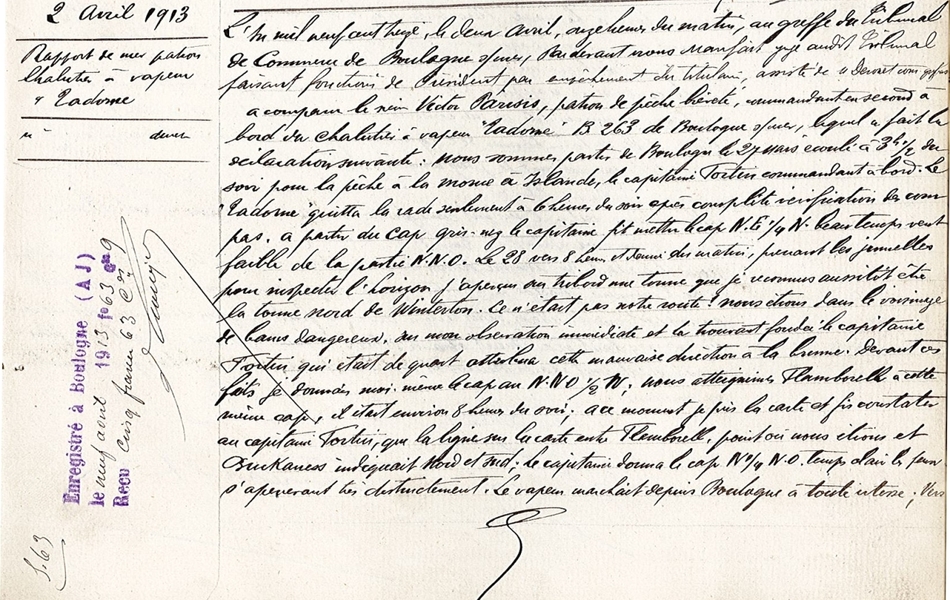 2 Avril 1913
Rapport de mer patron
Chalutier à vapeur
"Tadorne"
L'an mil neuf cent treize, le deux avril, onze heures du matin, au greffe du Tribunal
de Commerce de Boulogne s/mer, Pardevant nous Maufait juge audit Tribunal
faisant fonctions de Président par empêchement du titulaire, assisté de
a comparu le sieur Victor Parisis, patron de pêche breveté, commandant en second à
bord du chalutier à vapeur "Tadorne" B 263 de Boulogne s/mer, lequel a fait la
déclaration suivante : nous sommes partis de Boulogne le 27 mars écoulé à 3h 1/2 du
soir pour la pêche à la morue à Islande, le capitaine Fortin commandant à bord. Le
"Tadorne" quitta la rade seulement à 6 heures du soir après complète vérification des com
pas. à partir du Cap gris-nez le capitaine fit mettre le cap N.E 1/4 N. beau temps vent
faible de la partie N.N.O. Le 28 vers 8 heures et demie du matin, prenant les jumelles
pour inspecter l'horizon j'aperçus sur tribord une tonne que je reconnus aussitôt être
la tonne Nord de Winterton. Ce n'était pas notre route ! nous étions dans le voisinage
de bancs dangereux. Sur mon observation immédiate et la trouvant fondée le capitaine
Fortin qui était de quart attribua cette mauvaise direction à la brume. Devant ces
faits je donnais moi-même le cap au N.N.O 1/2 N. nous atteignîmes Flamborell à cette
même cap, il était environ 8 heures du soir. à ce moment je pris la carte et fis constater
au capitaine Fortin, que la ligne sur la carte entre Flemborell, point où nous étions et
Buckaness indiquait Nord et Sud ; le capitaine donna le cap N 1/4 N.O. temps clair les feux
s'apercevant très distinctement. Le vapeur marchait depuis Boulogne à toute vitesse ; Vers
Enregistré à Boulogne (A J)
le neuf avril 1913 fo 63 Cse 9
Reçu cinq francs 63 Cmes
S. 63